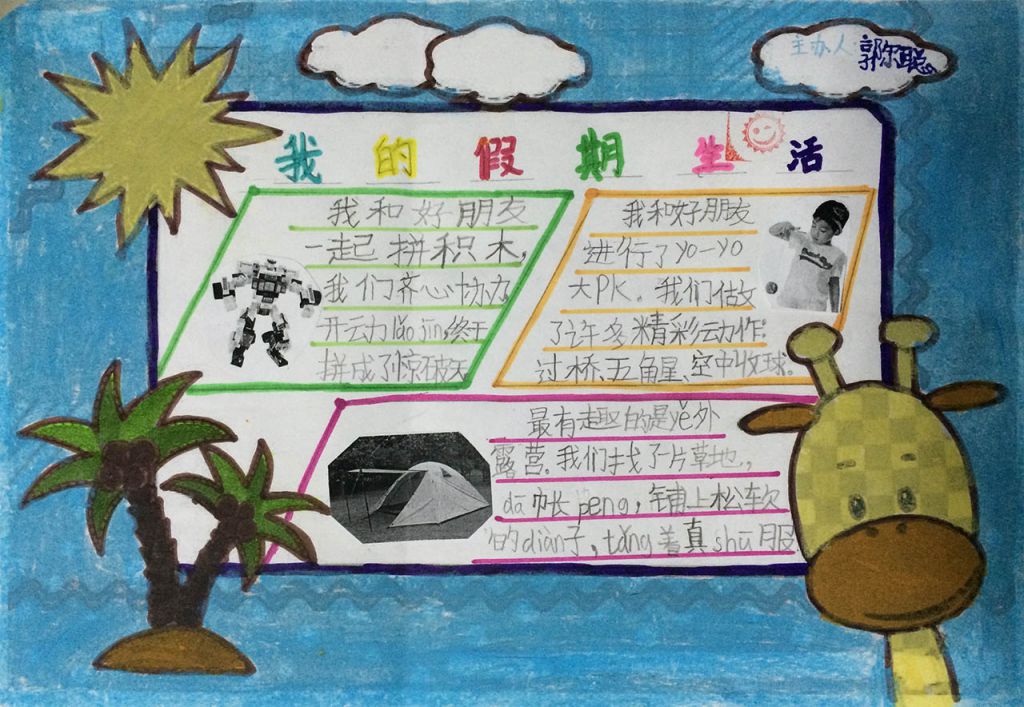 主办人：郭尔聪
我的假期生活
我和好朋友
一起拼积木，
我们齐心协力
开云力lǎo jīn终于
拼成了惊破天
我和好朋友
进行了yo-yo
大PK。我们做
了许多精彩云力作：
过桥、五角星、空中收球。
最有趣的是yě外
露营。我们找了片草地，
dā帐peng，铺上松软
的diàn子，tǎng着真shū服